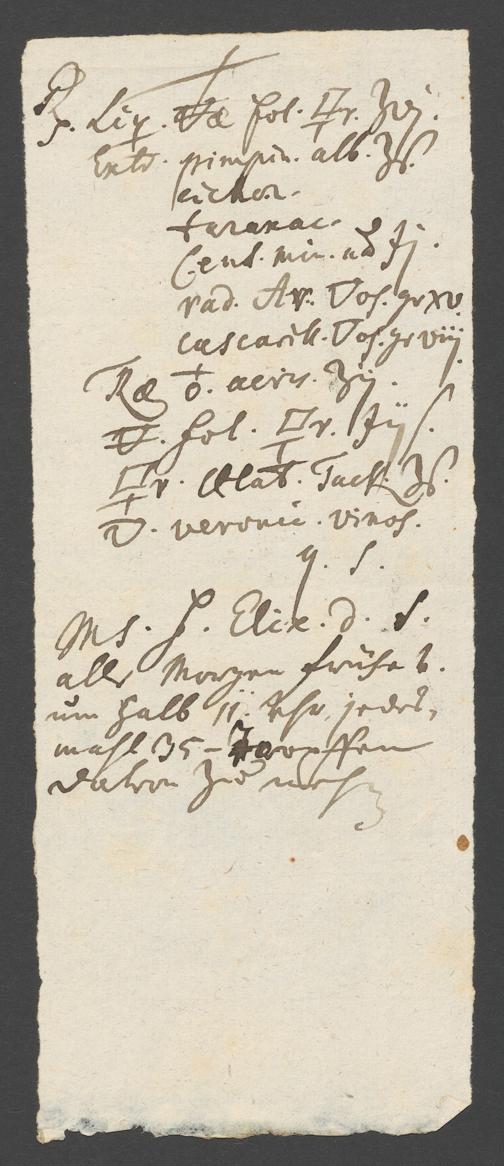 Rp. Liq. 🜃æ fol. 🜿r. ʒvj.
Extr. pimpin. alb. ʒß.
cichor.
taraxac.
Cent. min. ad ʒj.
rad. Ar. Vos. gr xv.
cascarill. Vos. gr viij.
Ræ aeris. ʒij.
fol. 🜿r. ʒijß.
🜿r. Tach. ʒß.
veronic. vinos.
q. s.
Ms. f. Elix. d. S.
alle Morgen frühe u.
um halb 11. Uhr, jedes,
mahl 35 - Tropffen
davon zu nehm